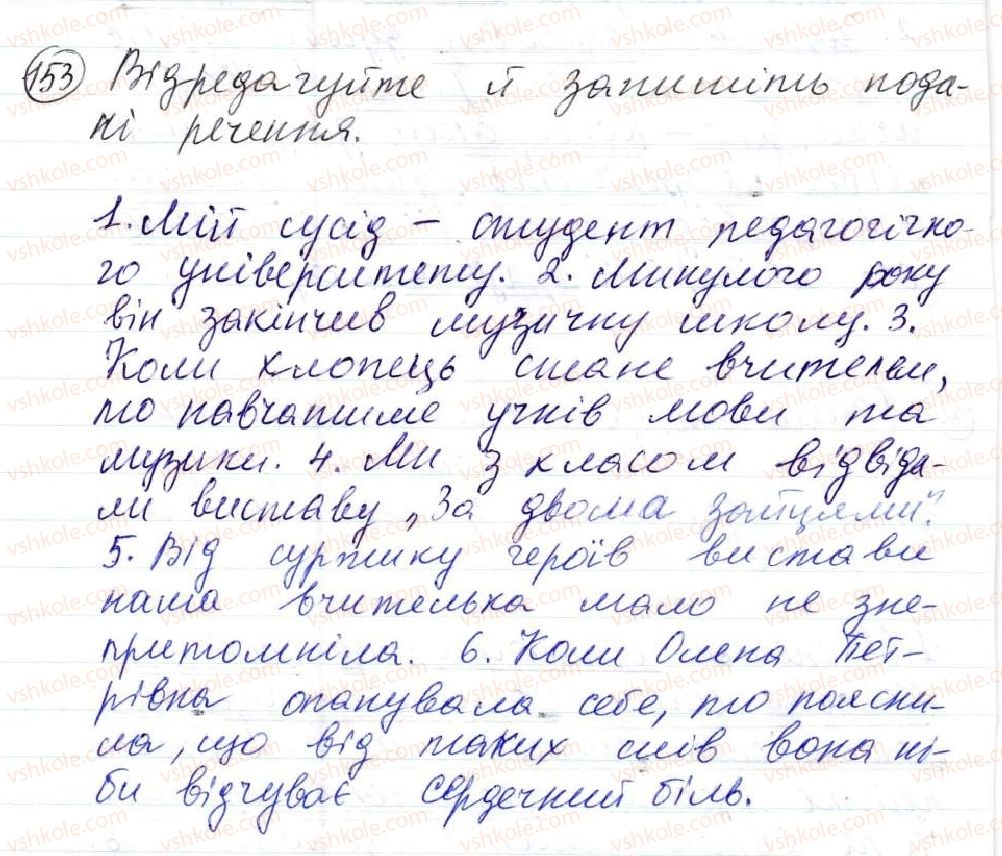 153 Відредагуйте й запишіть пода-
ні речення.
1. Мій сусід – студент педагогічно-
го університету. 2. Минулого року
він закінчив музичну школу. 3.
Коли хлопець стане вчителем,
то навчатиме учнів мови та
музики. 4. Ми з класом відвіда-
ли виставу „За двома зайцями".
5. Від суржику героїв вистави
наша вчителька мало не зне-
притомніла. 6. Коли Олена Пет-
рівна опанувала себе, то поясни-
ла, що від таких слів вона ні-
би відчуває сердечний біль.